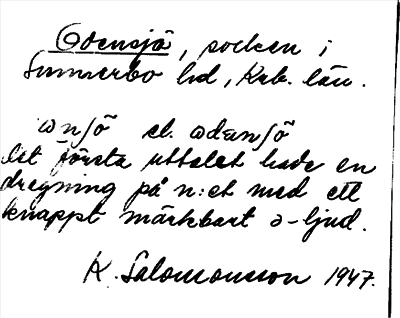 Odensjö, socken i
Sunnerbo hd, Krb. län.
ωnʃö el. ωdɛnʃö
Det första uttalet hade en
dragning på n:et med ett
knappt märkbart ə-ljud.
K. Salomonsson 1947.